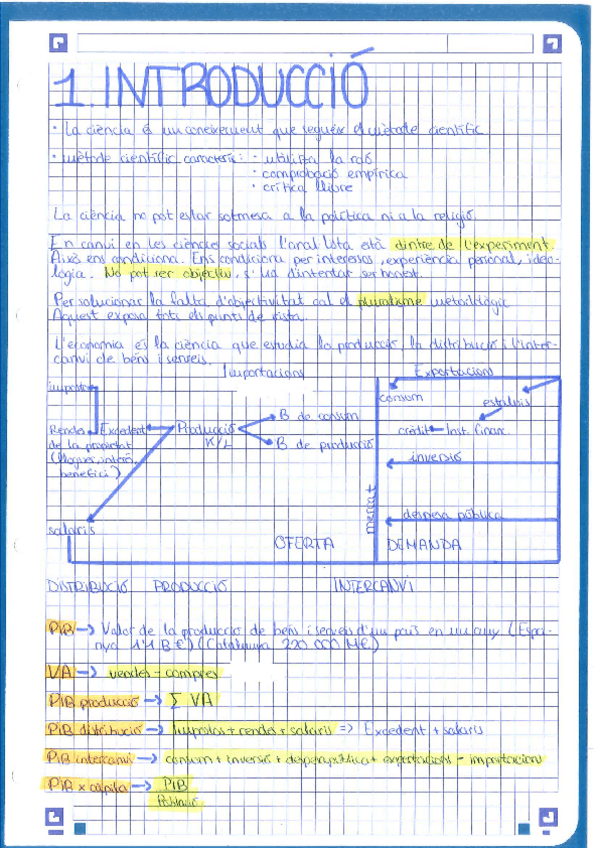 1. INTRODUCCIÓ
· La ciència és un coneixement que segueix el mètode científic
· mètode científic caracterís: · utilitza la raó
· comprobació empírica
· crítica lliure
La ciència no pot estar sotmesa a la política ni a la religió.
En canvi en les ciències socials l'analista està dintre de l'experiment.
Això ens condiciona. Ens condiciona per interessos, experiència personal, ideo-
logia. No pot ser objectiu, s'ha d'intentar ser honest.
Per solucionar la falta d'objectivitat cal el pluralisme metodològic
Aquest exposa tots els punts de vista.
L'economia és la ciència que estudia la producció, la distribució i l'inter-
canvi de béns i serveis.
Importacions
Exportacions
impostos
consum
estalvis
B de consum
Rendes
Excedent
Producció
K/L
crèdit
Inst. financ.
de la propietat
(lloguer, interès,
benefici)
B de producció
inversió
mercat
despesa pública
salaris
OFERTA
DEMANDA
DISTRIBUCIÓ PRODUCCIÓ INTERCANVI
PIB → Valor de la producció de béns i serveis d'un país en un any (Espa-
nya 1'1 B €) (Catalunya 220 000 M€)
VA → vendes - compres
PIB producció → ∑ VA
PIB distribució → Impostos + rendes + salaris => Excedent + salaris
PIB intercanvi → consum + inversió + despesa pública + exportacions - importacions
PIB x càpita → PIB
Població